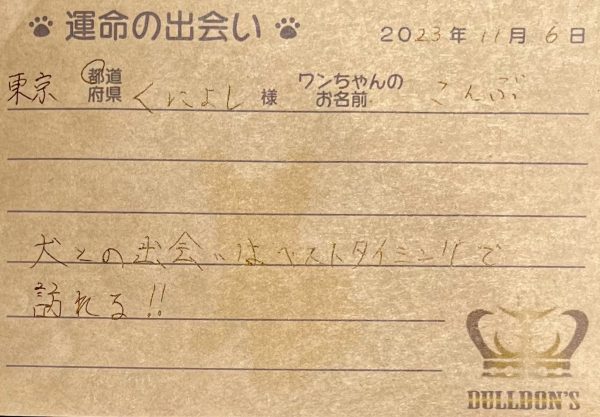 運命の出会い 2023年11月6日
東京 都道府県 くによし様 ワンちゃんのお名前 こんぶ
犬との出会いはベストタイミングで
訪れる!!
DULLDON'S